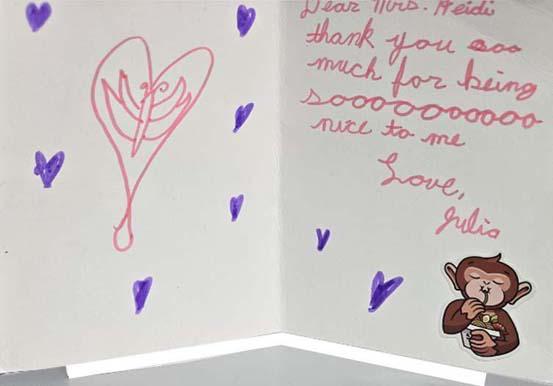 Dear Mrs. Heidi
thank you soo
much for being
soooooooooo
nice to me
Love,
Julia